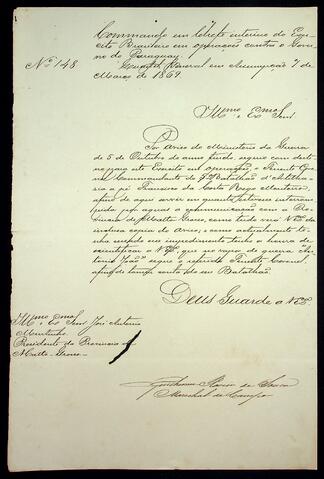 Commando em Chefe interino do Exer-
cito Brasileiro em operações contra o Gover-
no do Paraguay.
Nº 148. Quartel General em Assumpção 7 de
Março de 1869.
Illmo e Exmo Senr
Por Aviso do Ministerio da Guerra
de 5 de Outubro do anno findo, seguio com desti-
no para este Exercito em operações, o Tenente Coro-
nel Commandante do 2º Batalhão d'Artilha-
ria a pé Francisco da Costa Rego Monteiro,
afim de aqui servir em quanto estivesse interrom-
pida a communicação com a Pro-
vincia de Matto Grosso, como tudo verá V. Exª da
inclusa copia do Aviso; e como actualmente te-
nha cessado o impedimento tenho a honra de
scientificar a V. Exª que no vapor de guerra "An-
tonio João" segue o referido Tenente Coronel,
afim de tomar conta do seu Batalhão.
Deus Guarde a V. Exª
Illmo e Exmo Senr José Antonio
Murtinho.
Presidente da Provincia de
Matto-Grosso.
Guilherme Xavier de Souza
Marechal de Campo